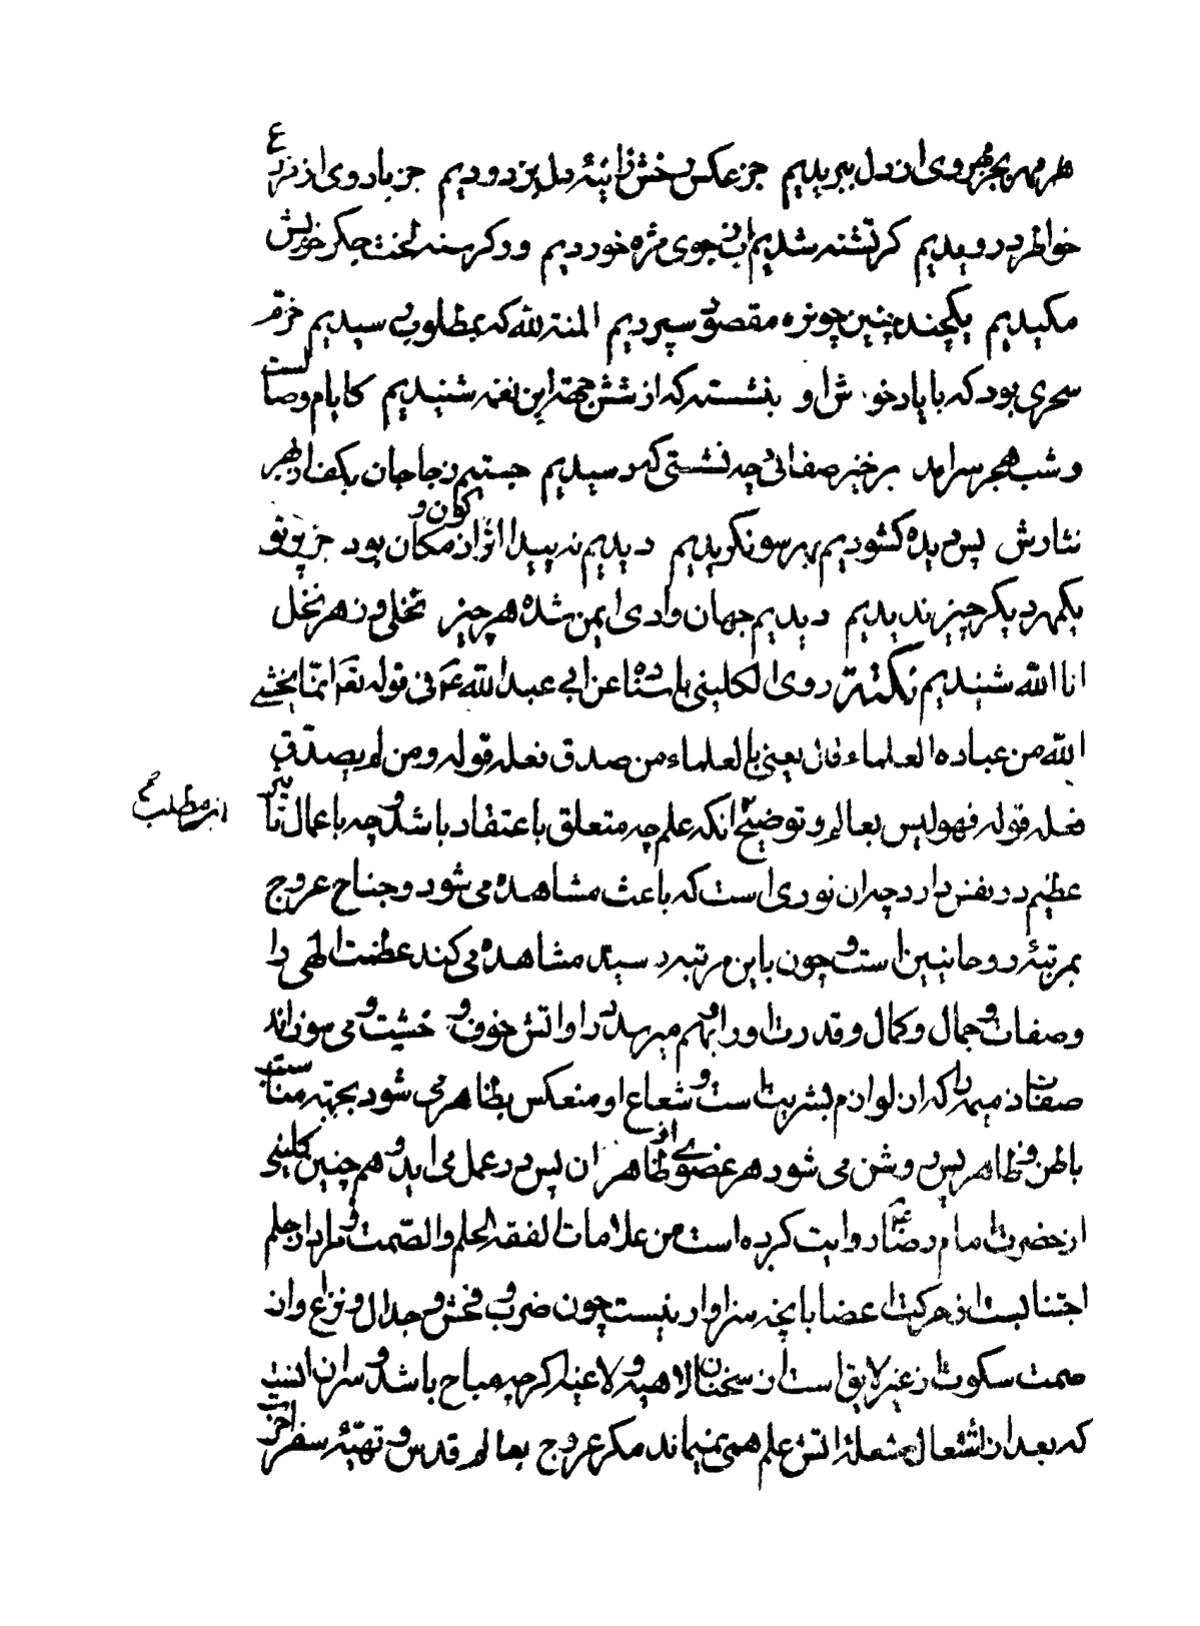 هر مهر بجز مهر وی از دل ببریدیم جز عکس رخش ز اینهٔ دل بزدودیم جز یاد وی از مزرع
خواطر درویدیم کر تشنه شدیم اب ز جوی مژه خوردیم ور کرسنه لخت جکر خویش
مکیدیم یکچند چنین چون ره مقصود سپردیم المنة لله که بمطلوب رسیدیم خرم
سحری بود که با یاد خوش او بنشسته که از شش جهة این نغمه شنیدیم کایام وصالست
و شب هجر سرامد برخیز صفائی چه نشستی که رسیدیم جستیم ز جا جان بکف از بهر
نثارش پس دیده کشودیم بهر سو نکریدیم دیدیم نه پیدا اثر از کون و مکان بود جز پرتو
یکمهر دیکر چیز ندیدیم دیدیم جهان وادی ایمن شده هر چیز نخلی و ز هر نخل
انا الله شنیدیم نکتة روی الکلینی باسناده عن ابی عبد الله ع فی قوله تع انما یخشی
الله من عباده العلماء قال یعنی بالعلماء من صدق فعله قوله و من لم یصدق
فعله قوله فهو لیس بعالم و توضیح انکه علم چه متعلق باعتقاد باشد و چه باعمال تاثیر
عظیم در نفس دارد چه ان نوری است که باعث مشاهده می شود و جناح عروج
بمرتبهٔ روحانیین است و چون باین مرتبه رسید مشاهده می کند عظمت الهی را
و صفات و جمال و کمال و قدرت او را و بهم میرسد او را اتش خوف و خشیت و می سوزاند
صفات ذمیمه را که از لوازم بشریت است و شعاع او منعکس بظاهر می شود بجهة مناسبت
باطن و ظاهر پس روشن می شود هر عضوی از ظاهر ان پس در عمل می اید و هم چنین کلینی
از حضرت امام رضا ع روایت کرده است من علامات الفقه الحلم و الصمت و مراد از حلم
اجتنابست از حرکت اعضا بانچه سزاوار نیست چون ضرب و فحش و جدال و نزاع و از
صمت سکوت از غیر لایق است از سخنان لاهیه و لاغیه اکرچه مباح باشد و سر ان اینست
که بعد از اشتعال شعلهٔ اتش علم همی نمیماند مکر عروج بعالم قدس و تهیهٔ سفر اخرت
این مطلب